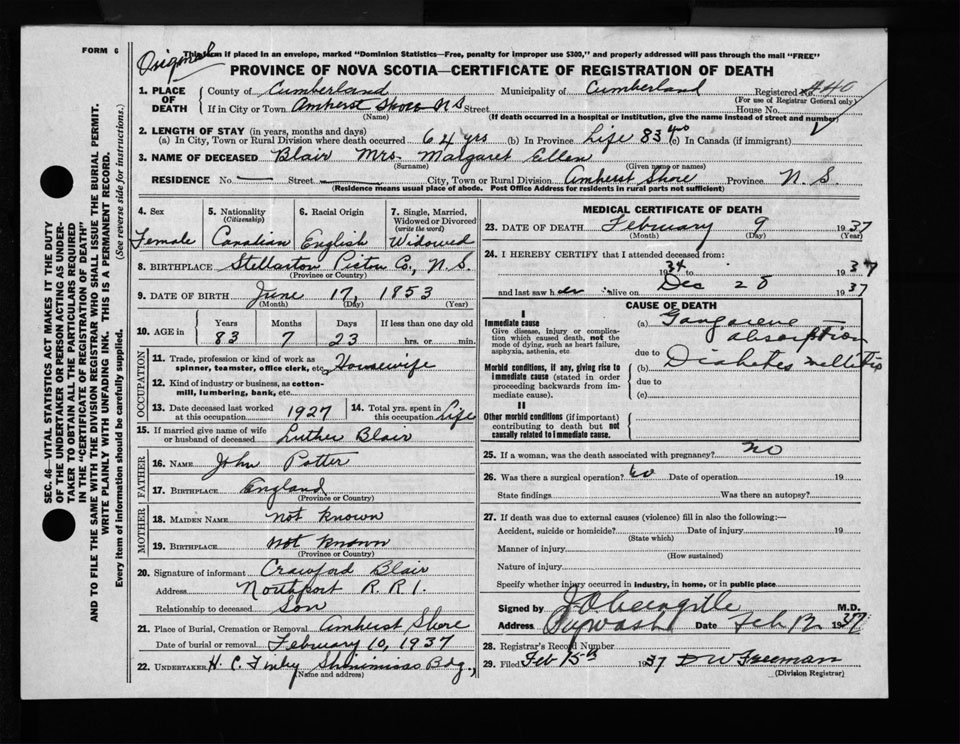 FORM 6
Original
This form if placed in an envelope, marked "Dominion Statistics—Free, penalty for improper use $300," and properly addressed will pass through the mail "FREE"
PROVINCE OF NOVA SCOTIA—CERTIFICATE OF REGISTRATION OF DEATH
1. PLACE OF DEATH County of Cumberland Municipality of Cumberland Registered No. 440
(For use of Registrar General only)
If in City or Town Amherst Shore N S Street House No.
(Name) (If death occurred in a hospital or institution, give the name instead of street and number)
2. LENGTH OF STAY (in years, months and days)
(a) In City, Town or Rural Division where death occurred 64 yrs (b) In Province Life 83 yrs (c) In Canada (if immigrant)
3. NAME OF DECEASED Blair Mrs. Margaret Ellen
(Surname) (Given name or names)
RESIDENCE No. — Street — City, Town or Rural Division Amherst Shore Province N. S.
(Residence means usual place of abode. Post Office Address for residents in rural parts not sufficient)
4. Sex Female
5. Nationality (Citizenship) Canadian
6. Racial Origin English
7. Single, Married, Widowed or Divorced (write the word) Widowed
8. BIRTHPLACE Stellarton Pictou Co., N. S.
(Province or Country)
9. DATE OF BIRTH June 17, 1853
(Month) (Day) (Year)
10. AGE in Years Months Days If less than one day old
83 7 23 hrs. or min.
OCCUPATION
11. Trade, profession or kind of work as spinner, teamster, office clerk, etc. Housewife
12. Kind of industry or business, as cotton-mill, lumbering, bank, etc.
13. Date deceased last worked at this occupation 1927
14. Total yrs. spent in this occupation Life
15. If married give name of wife or husband of deceased Luther Blair
FATHER
16. NAME John Potter
17. BIRTHPLACE England
(Province or Country)
MOTHER
18. MAIDEN NAME not known
19. BIRTHPLACE Not known
(Province or Country)
20. Signature of informant Crawford Blair
Address Northport R. R. 1.
Relationship to deceased Son
21. Place of Burial, Cremation or Removal Amherst Shore
Date of burial or removal February 10, 1937
22. UNDERTAKER H. C. Bdg.,
(Name and address)
MEDICAL CERTIFICATE OF DEATH
23. DATE OF DEATH February 9 1937
(Month) (Day) (Year)
24. I HEREBY CERTIFY that I attended deceased from:
1934 to 1937
and last saw her alive on Dec 28 1937
CAUSE OF DEATH
I
Immediate cause
Give disease, injury or complication which caused death, not the mode of dying, such as heart failure, asphyxia, asthenia, etc
(a) Gangrene absorption
due to
Morbid conditions, if any, giving rise to immediate cause (stated in order proceeding backwards from immediate cause).
(b) Diabetes mellitis
due to
(c)
II
Other morbid conditions (if important) contributing to death but not causally related to immediate cause.
25. If a woman, was the death associated with pregnancy? no
26. Was there a surgical operation? no Date of operation 19
State findings Was there an autopsy?
27. If death was due to external causes (violence) fill in also the following:—
Accident, suicide or homicide? Date of injury 19
(State which)
Manner of injury
(How sustained)
Nature of injury
Specify whether injury occurred in industry, in home, or in public place
Signed by M.D.
Address Pugwash Date Feb 12 1937
28. Registrar's Record Number
29. Filed Feb 15th 1937 D W Freeman
(Division Registrar)
SEC. 46—VITAL STATISTICS ACT MAKES IT THE DUTY
OF THE UNDERTAKER OR PERSON ACTING AS UNDER-
TAKER TO OBTAIN ALL THE PARTICULARS REQUIRED
IN THE "CERTIFICATE OF REGISTRATION OF DEATH"
AND TO FILE THE SAME WITH THE DIVISION REGISTRAR WHO SHALL ISSUE THE BURIAL PERMIT.
WRITE PLAINLY WITH UNFADING INK. THIS IS A PERMANENT RECORD.
Every item of information should be carefully supplied. (See reverse side for instructions.)